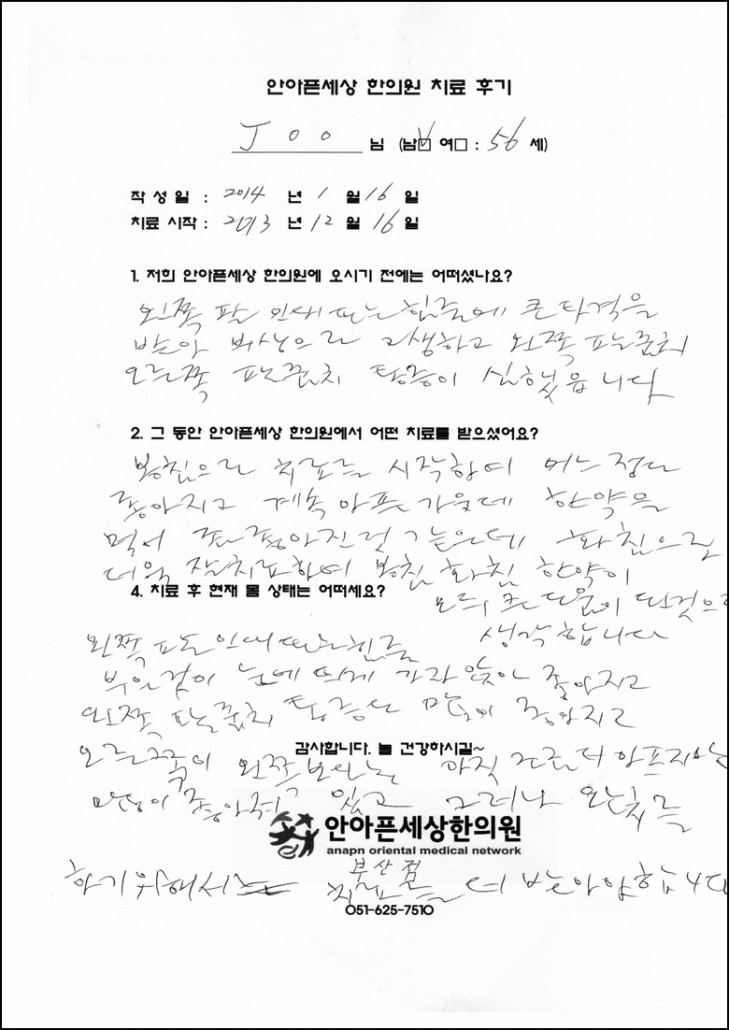 안아픈세상 한의원 치료 후기
Joo 님 (남☑ 여□ : 56 세)
작 성 일 : 2014 년 1 월 16 일
치료 시작 : 2013 년 12 월 16 일
1. 저희 안아픈세상 한의원에 오시기 전에는 어떠셨나요?
왼쪽 팔 인대 또는 힘줄에 큰 타격을
받아 부상으로 고생하고 왼쪽 팔꿈치
오른쪽 팔꿈치 통증이 심했읍니다
2. 그 동안 안아픈세상 한의원에서 어떤 치료를 받으셨어요?
봉침으로 치료를 시작하여 어느 정도
좋아지고 계속 아픈 가운데 한약을
먹어 좀 좋아진것 같은데 화침으로
더욱 잘치료하여 봉침 화침 한약이
4. 치료 후 현재 몸 상태는 어떠세요?
모두 큰 도움이 된것으로
생각합니다
왼쪽 팔 인대 또는 힘줄
부은것이 눈에 띄게 가라앉아 좋아지고
왼쪽 팔꿈치 통증도 많이 좋아지고
오른쪽이 왼쪽보다는 아직 조금 더 아프지만
감사합니다. 늘 건강하시길~
많이 좋아지고 있고 그러나 완치를
안아픈세상한의원
anapn oriental medical network
부산점
하기위해서는 치료를 더 받아야합니다
051-625-7510